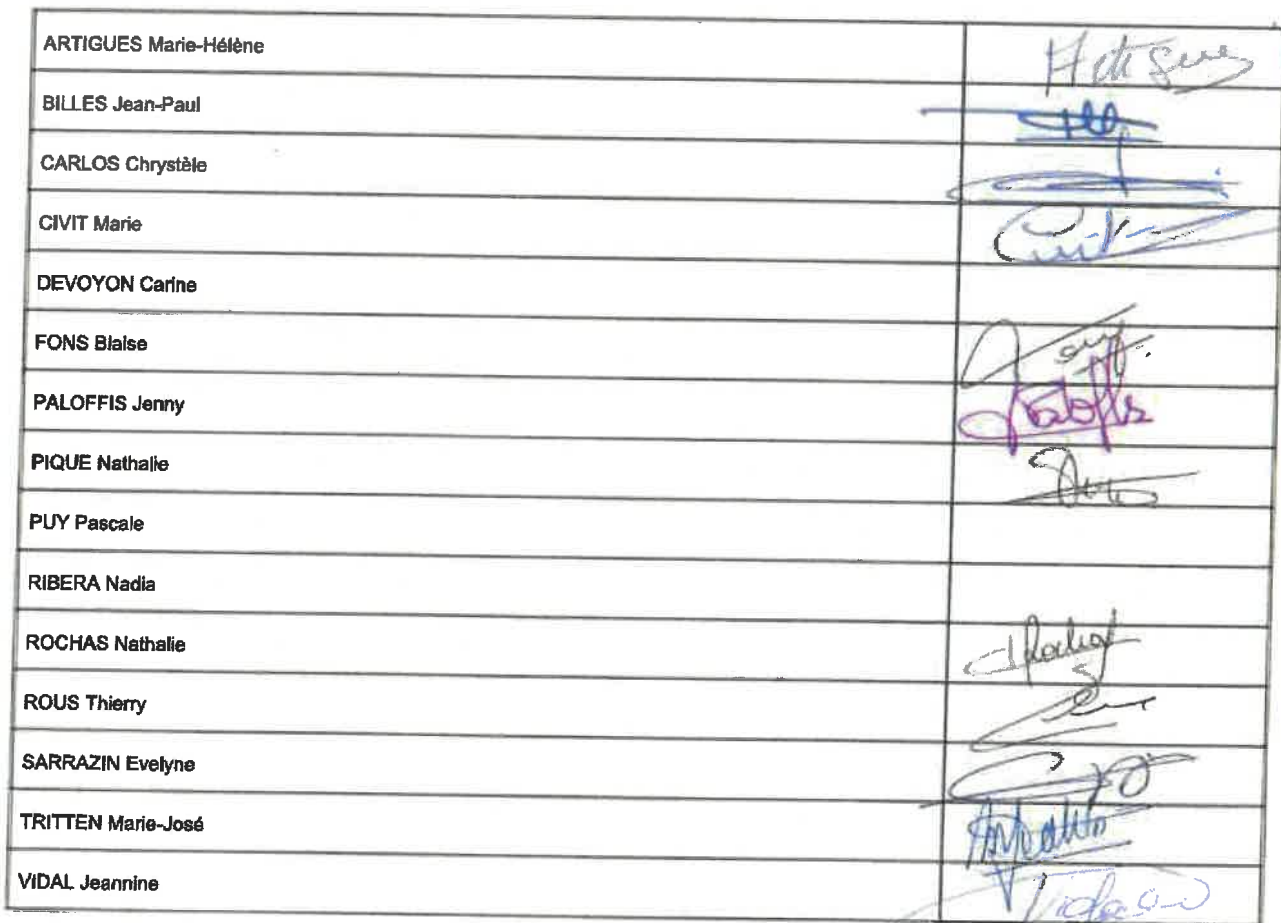 ARTIGUES Marie-Hélène
BILLES Jean-Paul
CARLOS Chrystèle
CIVIT Marie
DEVOYON Carine
FONS Blaise
PALOFFIS Jenny
PIQUE Nathalie
PUY Pascale
RIBERA Nadia
ROCHAS Nathalie
ROUS Thierry
SARRAZIN Evelyne
TRITTEN Marie-José
VIDAL Jeannine